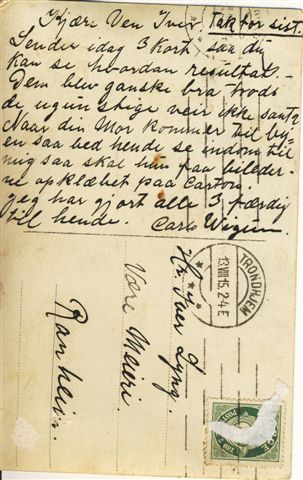 Kjære Ven Iver! Tak for sist.
Sender idag 3 kort saa du
kan se hvordan resultat. –
Dem blev ganske bra trods
de ugunstige veir ikke sant?
Naar din Mor kommer til by-
en saa bed hende se indom til
mig saa skal hun faa bileder-
ne opklæbet paa Carton.
Jeg har gjort alle 3 færdig
til hende. Carl
TRONDHJEM
13.VII.15. 2-4 E
Hr. Iver Lyng.
Være Meieri.
Ranheim.